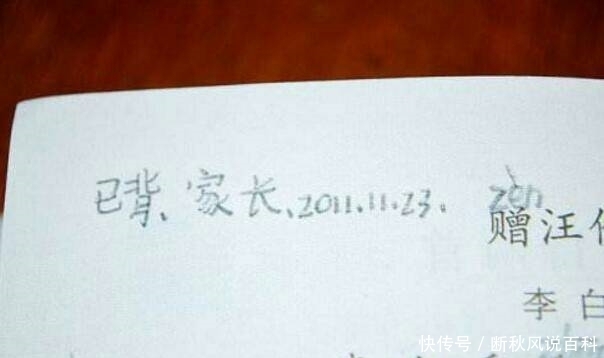 已背、家长、2011.11.23.
zèn
赠汪
李白
快传号／断秋风说百科